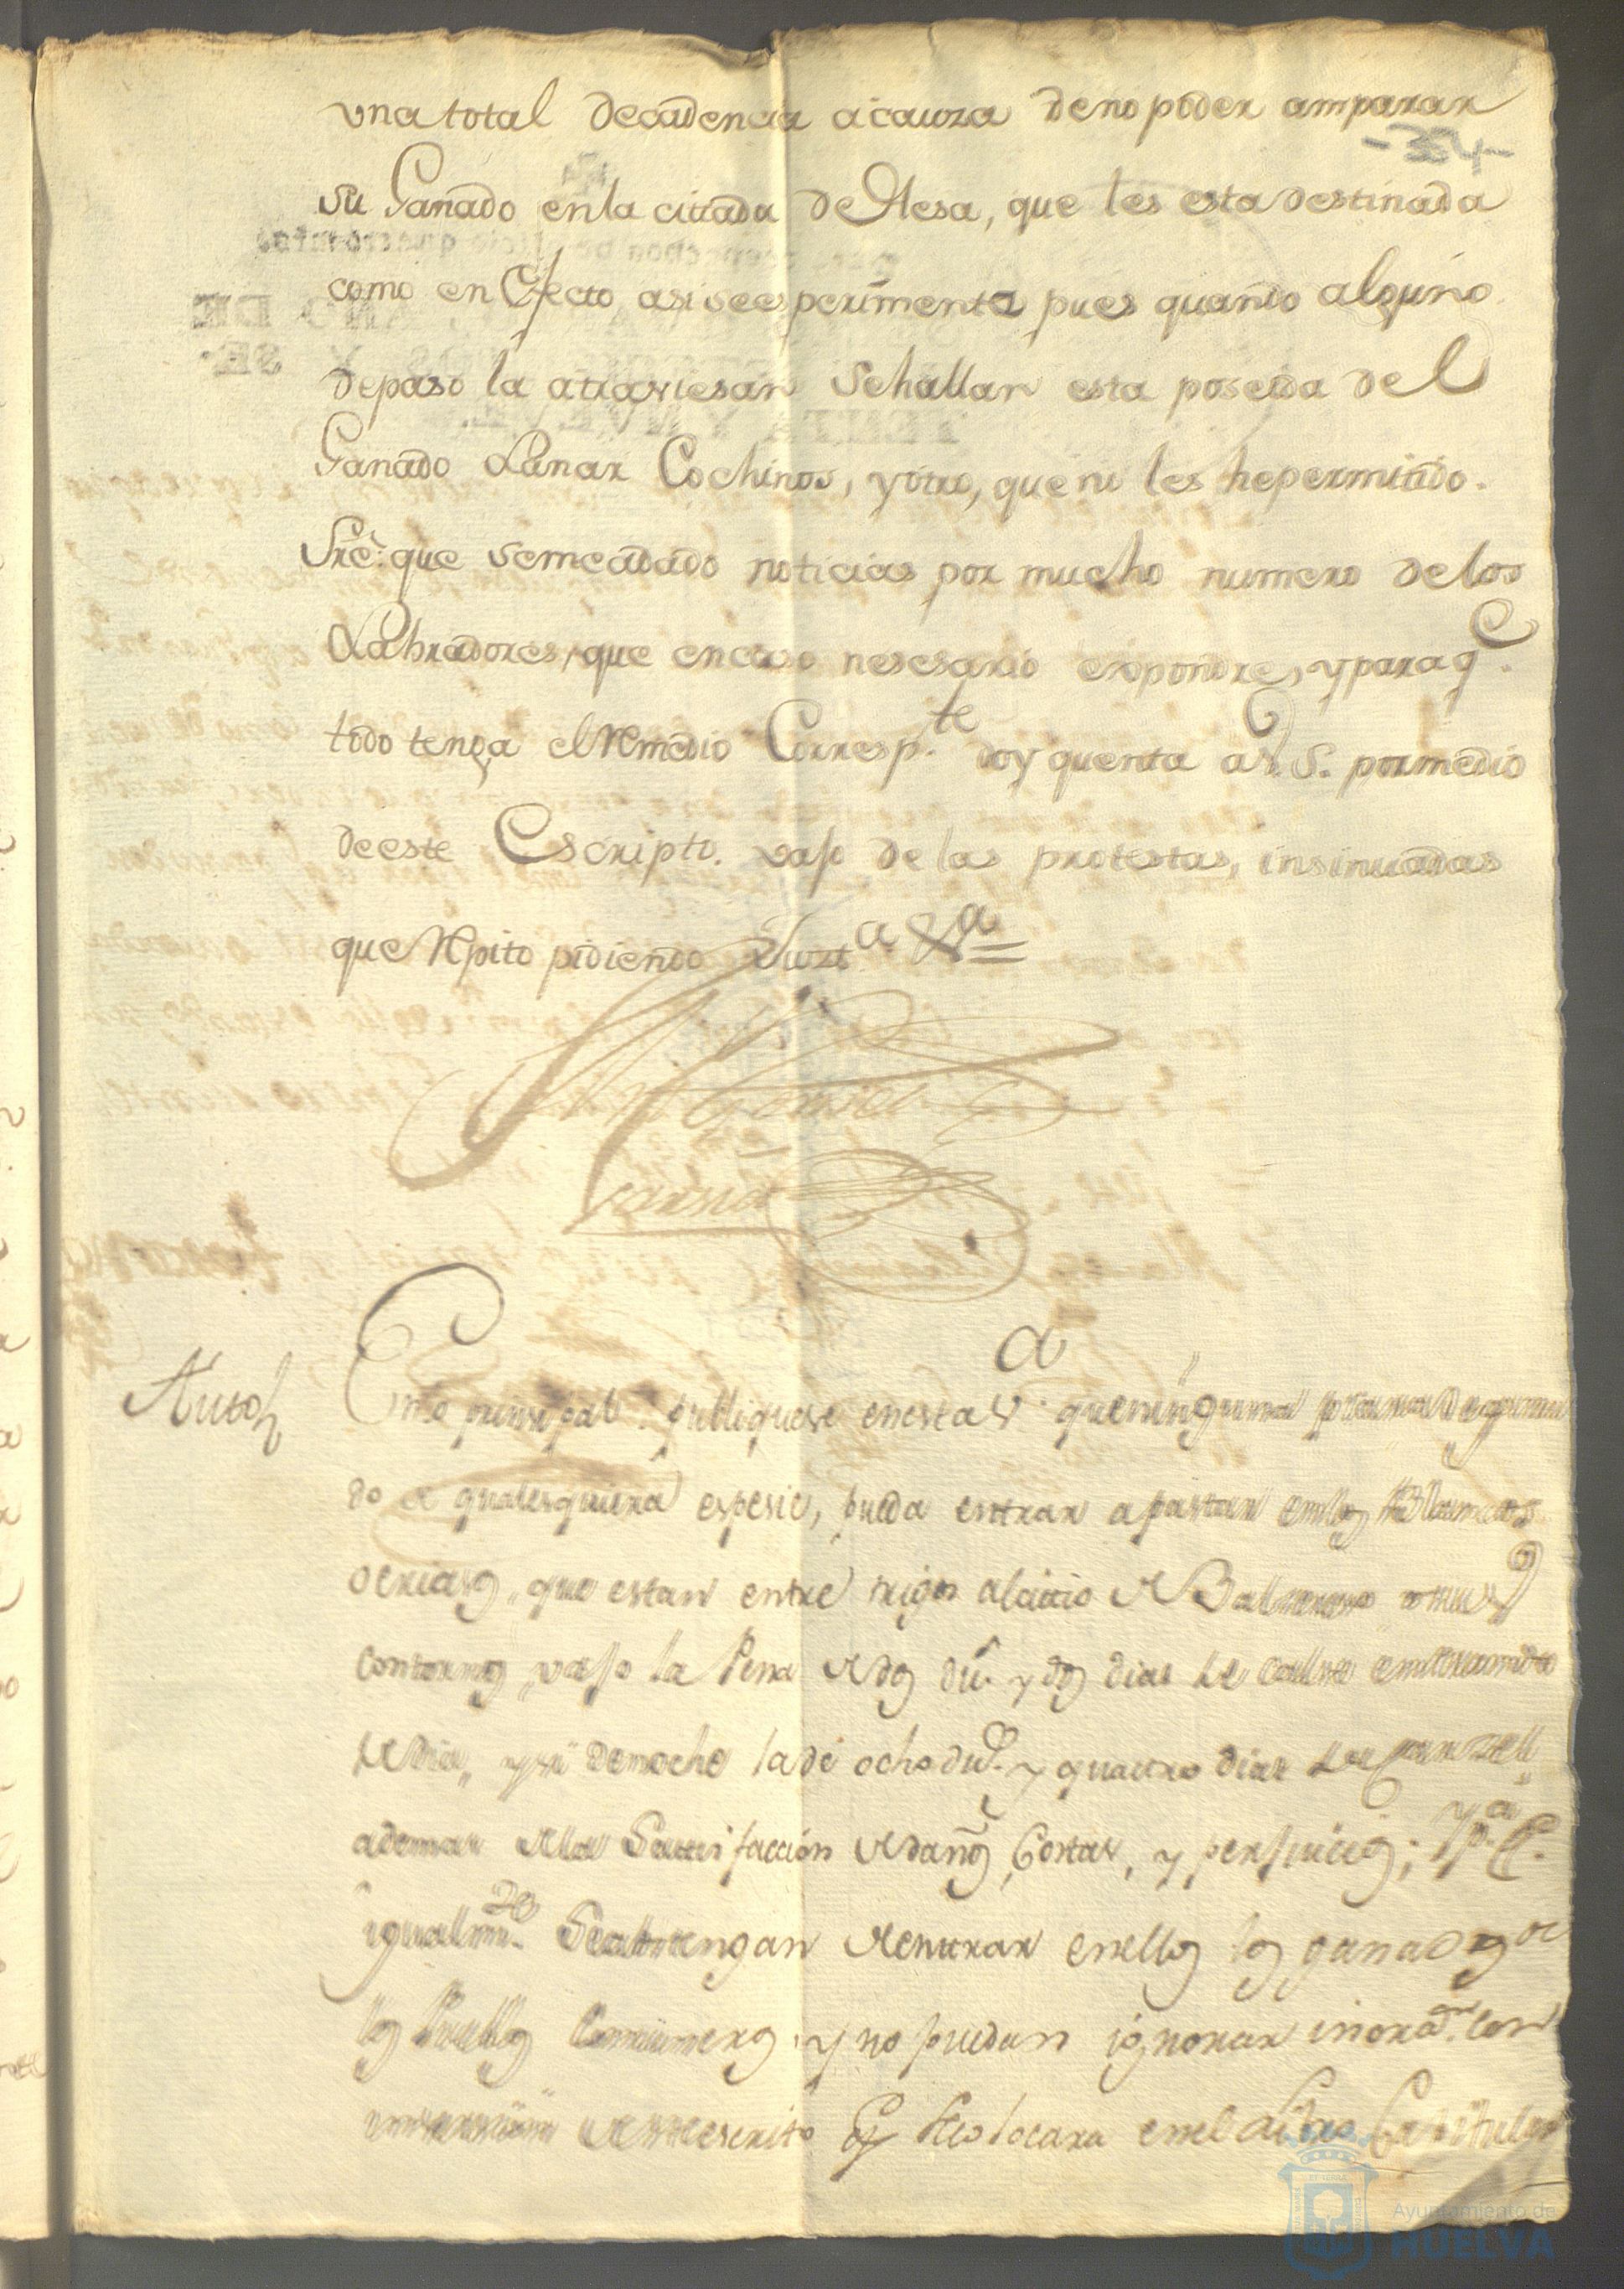 una total decadencia a cauza de no poder amparar
-34-
su Ganado en la citada deHesa, que les esta destinada
como en Efecto asi se esperimenta pues quando alguno
de paso la atraviesan se hallan esta poseida del
Ganado Lanar Cochinos, y otro, que ni les he permitido.
que se me a dado noticias por mucho numero de los
Labradores, que en caso nesesario expondre, y para q.e
todo tenga el Remedio Corresp.te doy quenta a V. S. por medio
de este Escripto. vajo de las protestas, insinuadas
que Repito pidiendo Juzt.a &a
Garsia
Auto
En lo prinsipal: publiquese en esta V.a que ninguna
do de qualesquiera espesie, pueda entrar a pastar en los
que estan entre trigos al citio de
contornos, vajo la Pena de dos du.s y dos dias de
de dia, y si de noche la de ocho du.s y quatro dias de Carzel
ademas de la Satisfaccion de daños, Costas, y perjuicios; y p.a q.e
igualm.te Se abstengan de entrar en ellos los ganados de
los Pueblos Comuneros y no puedan ignorar
de este escrito en el Capitular
Ayuntamiento de
HUELVA